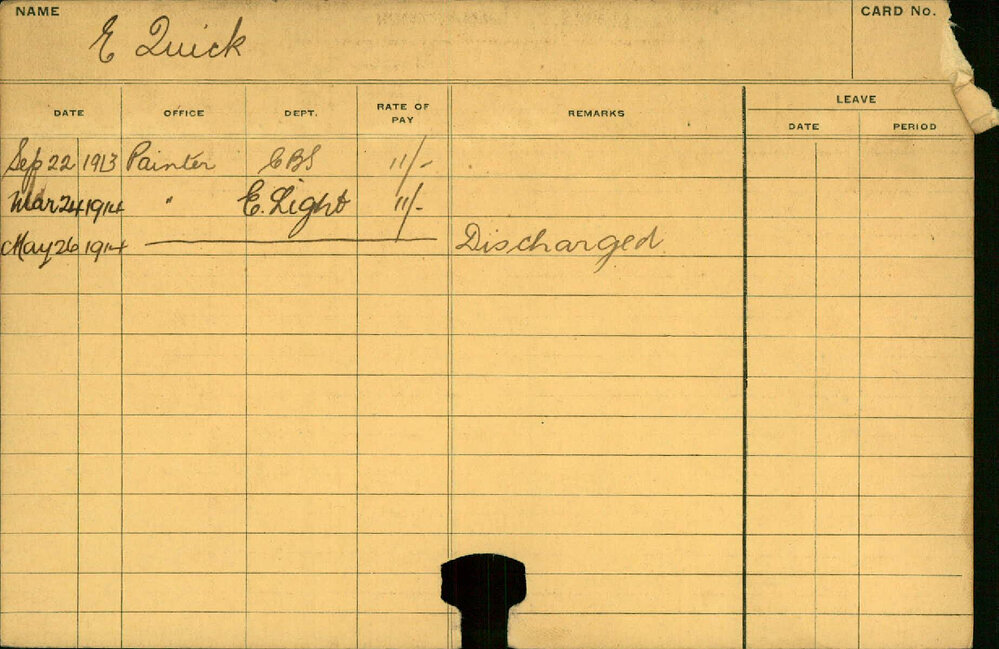 NAME
E Quick
CARD No.
DATE OFFICE DEPT. RATE OF PAY REMARKS LEAVE
DATE PERIOD
Sep 22 1913 Painter CBS 11/-
Mar 24 1914 " E. Light 11/-
May 26 1914 Discharged